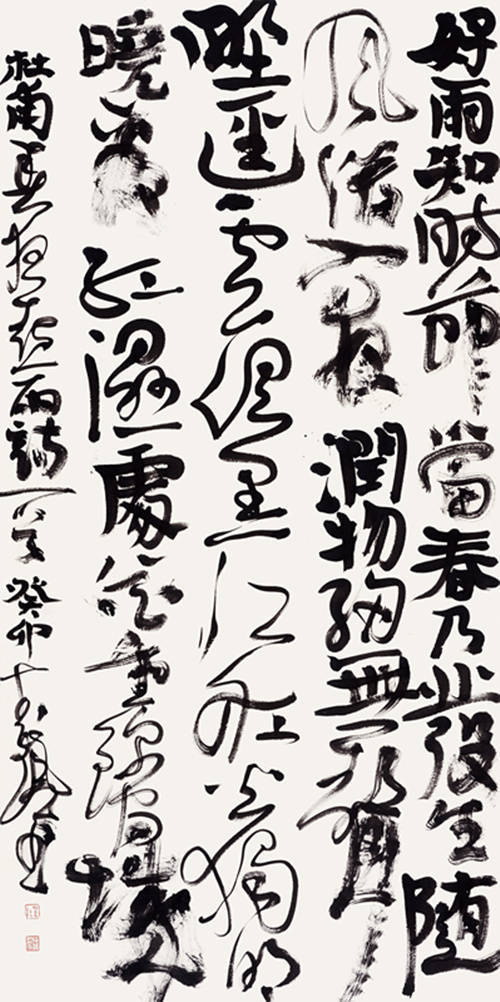 好雨知時節當春乃發生隨
風潛入夜潤物細無聲
野徑雲俱黑江船火獨明
曉看紅濕處花重錦官城
杜甫春夜喜雨詩一首癸卯